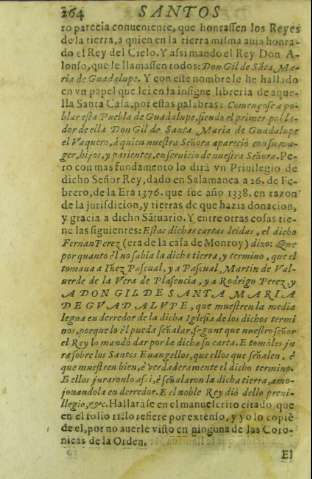 264 SANTOS
ro parecia conueniente, que honrassen los Reyes
de la tierra, a quien en la tierra misma auia honra-
do el Rey del Cielo. Y assi mando el Rey Don A-
lonso, que le llamassen todos: Don Gil de Sãta Ma-
ria de Guadalupe. Y con este nombre le he hallado
en vn papel que lei en la insigne libreria de aque-
lla Santa Casa, por estas palabras: Començose a po-
blar esta Puebla de Guadalupe, siendo el primer pobla-
dor de ella Don Gil de Santa Maria de Guadalupe
el Vaquero, à quien nuestra Señora apareciò con su mu-
ger, hijos, y parientes, en seruicio de nuestra Señora. Pe-
ro con mas fundamento lo dirà vn Priuilegio de
dicho Señor Rey, dado en Salamanca a 26. de Fe-
brero, de la Era 1376. que fue año 1338. en razon
de la jurisdicion, y tierras de que hazia donacion,
y gracia a dicho Sãtuario. Y entre otras cosas tie-
ne las siguientes: Estas dichas cartas leidas, el dicho
Fernan Perez (era de la casa de Monroy) dixo: Que
por quanto èl no sabia la dicha tierra, y termino, que el
tomaua a Iñez Pascual, y a Pascual, Martin de Val-
uerde de la Vera de Plasencia, y a Rodrigo Perez y
A DON GIL DE SANTA MARIA
DE GVADALVPE, que muestren la media
legua en derredor de la dicha Iglesia de los dichos termi-
nos, porque lo èl pueda señalar, segunt que nuestro señor
el Rey lo mandò dar por la dicha su carta. E tomòles ju
ra sobre los Santos Euangelios, que ellos que señalen, è
que muestren bien, è verdaderamente el dicho termino.
E ellos juraronlo assi, è señalaron la dicha tierra, amo-
jonandola en derredor. E el noble Rey diò dello preui-
llegio, &c. Hallaràse en el manuscrito citado, que
en el folio
refiere por extenso, y yo lo copiè
de el, por no auerle visto en ninguna de las Coro-
nicas de la Orden.
El